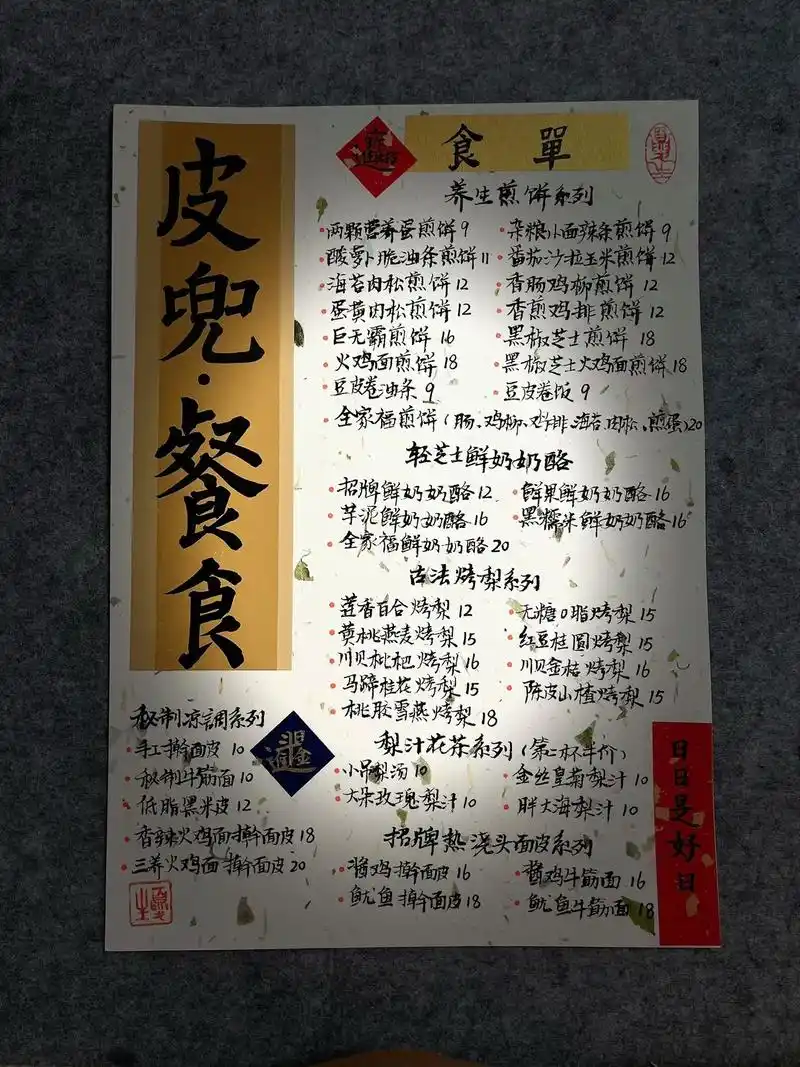 皮兜·餐食
食單
养生煎饼系列
两颗营养蛋煎饼 9
杂粮小面辣条煎饼 9
酸萝卜脆油条煎饼 11
番茄沙拉玉米煎饼 12
海苔肉松煎饼 12
香肠鸡柳煎饼 12
蛋黄肉松煎饼 12
香煎鸡排煎饼 12
巨无霸煎饼 16
黑椒芝士煎饼 18
火鸡面煎饼 18
黑椒芝士火鸡面煎饼 18
豆皮卷油条 9
豆皮卷饭 9
全家福煎饼(肠、鸡柳、鸡排、海苔、肉松、煎蛋)20
轻芝士鲜奶奶酪
招牌鲜奶奶酪 12
鲜果鲜奶奶酪 16
芋泥鲜奶奶酪 16
黑糯米鲜奶奶酪 16
全家福鲜奶奶酪 20
古法烤梨系列
莲香百合烤梨 12
无糖0脂烤梨 15
黄桃燕麦烤梨 15
红豆桂圆烤梨 15
川贝枇杷烤梨 16
川贝金桔烤梨 16
马蹄桂花烤梨 15
陈皮山楂烤梨 15
桃胶雪燕烤梨 18
梨汁花茶系列(第二杯半价)
小吊梨汤 10
金丝皇菊梨汁 10
大朵玫瑰梨汁 10
胖大海梨汁 10
招牌热浇头面皮系列
酱鸡擀面皮 16
酱鸡牛筋面 16
鱿鱼擀面皮 18
鱿鱼牛筋面 18
秘制凉調系列
手工擀面皮 10
秘制牛筋面 10
低脂黑米皮 12
香辣火鸡面擀面皮 18
三养火鸡面擀面皮 20
日日是好日